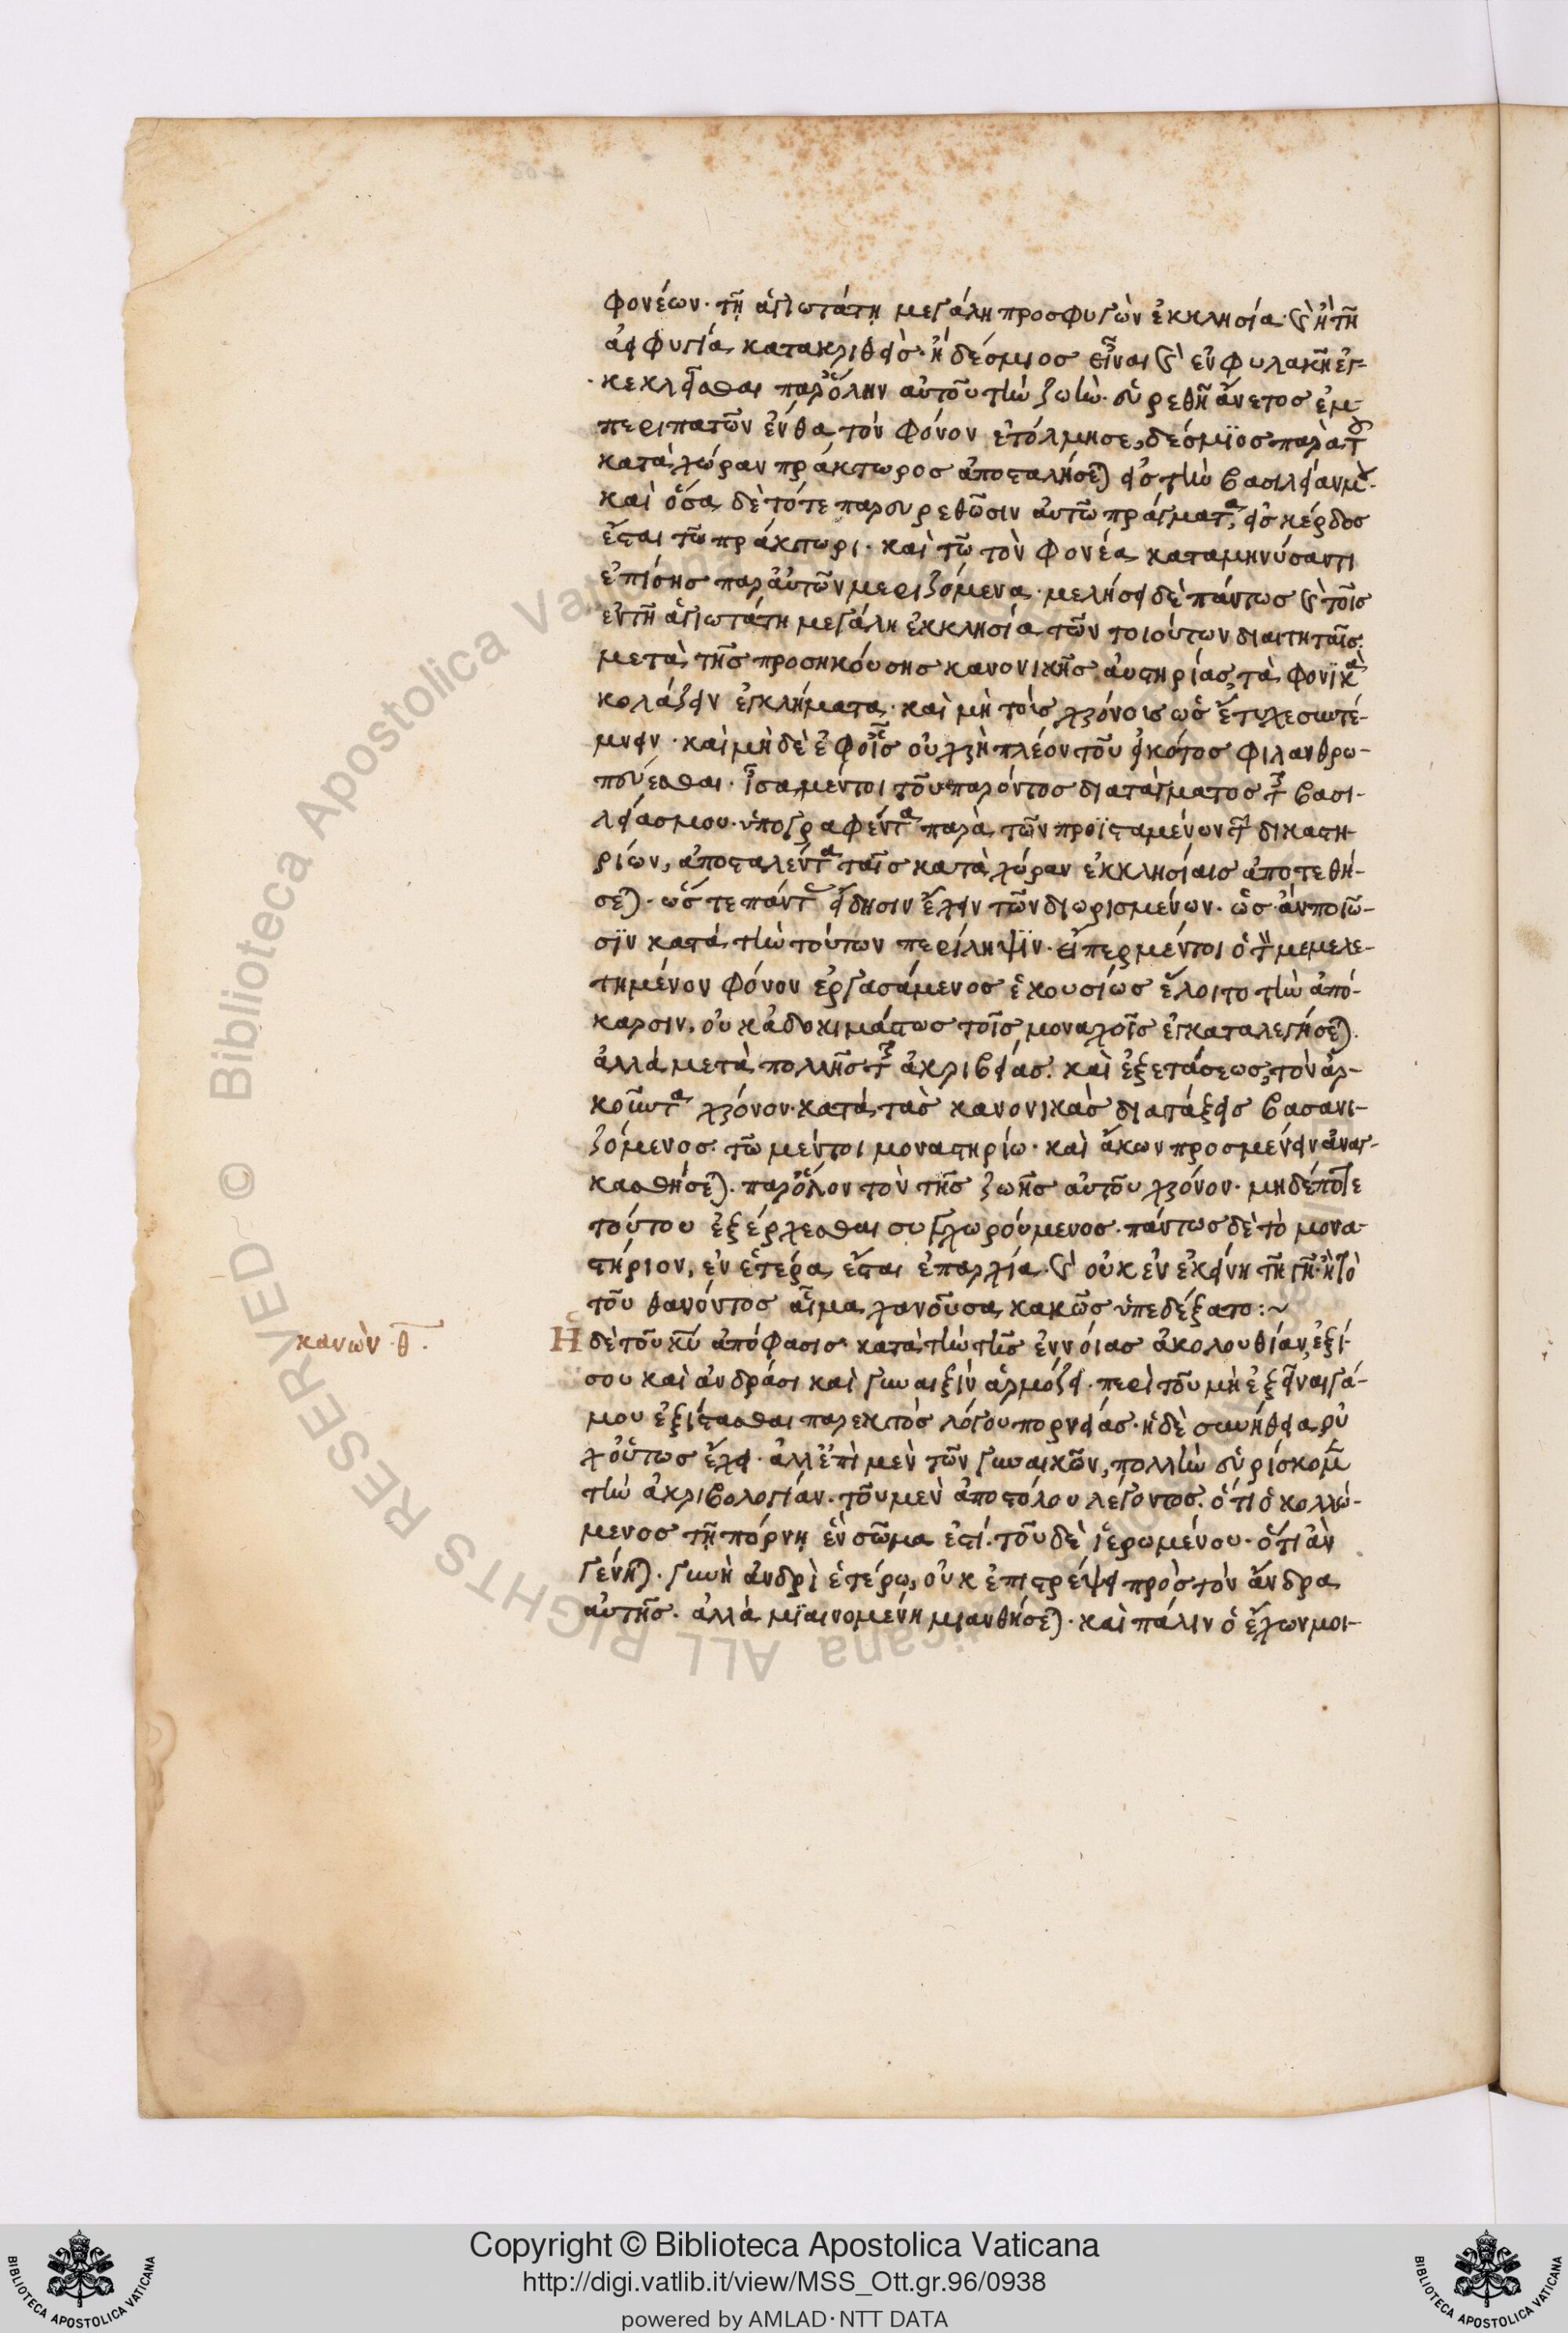 φονέων· τῇ ἁγιωτάτῃ μεγάλη προσφυγὼν ἐκκλησία· καὶ ἢ τῆ
ἀειφυγία κατακριθεὶς· ἢ δέσμιος εἶναι καὶ ἐν φυλακῆ ἐγ-
κεκλεῖσθαι παρ' ὅλην αὐτοῦ τὴν ζωὴν· εὑρεθῆ ἄνετος ἐμ-
περιπατῶν ἔνθα τὸν φόνον ἐτόλμησε, δέσμϊος παρὰ τοῦ
κατὰ χώραν πράκτωρος ἀποσταλήσεται εἰς τὴν βασιλεύανμε
καὶ ὅσα δὲ τότε παρευρεθῶσιν αὐτῶ πράγματα, εἰς κέρδος
ἔσται τῶ πράκτωρι· καὶ τῶ τὸν φονέα καταμηνύσαντι
ἐπίσης παρ' αὐτῶν μεριζόμενα· μελήσει δὲ πάντως καὶ τοῖς
ἐν τῆ ἁγιωτάτη μεγάλη ἐκκλησία τῶν τοιούτων διαιτηταῖς·
μετὰ τῆς προσηκούσης κανονικῆς αὐστηρίας, τὰ φονϊκὰ
κολάζειν ἐγκλήματα· καὶ μὴ τοῖς χρόνοις ὡς ἔτυχε συντέ-
μνειν· καὶ μὴ δὲ ἐφ' οἷς οὐ χρὴ πλέον τοῦ εἰκότος φιλανθρω-
πεύεσθαι· ἴσα μέντοι τοῦ παρόντος διατάγματος τῆς βασι-
λείας μου· ὑπογραφέντα παρὰ τῶν προϊσταμένων τῶν δικαστη-
ρίων, ἀποσταλέντα ταῖς κατὰ χώραν ἐκκλησίαις ἀποτεθή-
σεται· ὥς τε πάντας εἴδησιν ἔχειν τῶν διωρισμένων· ὡς ἂν ποιῶ-
σϊν κατὰ τὴν τούτων περίληψϊν· εἴπερ μέντοι ὁ τὸν μεμελε-
τημένον φόνον ἐργασάμενος ἑκουσίως ἕλοιτο τὴν ἀπό-
καρσιν, οὐκ ἀδοκιμάστως τοῖς μοναχοῖς ἐγκαταλεγήσεται·
ἀλλὰ μετὰ πολλῆς τῆς ἀκριβείας· καὶ ἐξετάσεως, τὸν ἀρ-
κοῦντα χρόνον· κατὰ τὰς κανονικὰς διατάξεις βασανι-
ζόμενος· τῶ μέντοι μοναστηρίω· καὶ ἄκων προσμένειν ἀναγ-
κασθήσεται· παρ' ὅλον τὸν τῆς ζωῆς αὐτοῦ χρόνον· μηδέποτε
τούτου ἐξέρχεσθαι συγχωρούμενος· πάντως δὲ τὸ μονα-
στήριον, ἐν ἑτέρα ἔσται ἐπαρχία· καὶ οὐκ ἐν ἐκείνη τῆ γῆ· ἣ τὸ
τοῦ θανόντος αἷμα χανοῦσα κακῶς ὑπεδέξατο:~
κανὼν θ̅.
Ἡ δὲ τοῦ κ̅υ̅ ἀπόφασις· κατὰ τὴν τῆς ἐννοίας ἀκολουθίαν, ἐξί-
σου καὶ ἀνδράσι καὶ γυναιξὶν ἁρμόζει· περὶ τοῦ μὴ ἐξεῖναι γά-
μου ἐξίστασθαι παρεκτὸς λόγου πορνείας· ἡ δὲ συνήθεια, οὐ
χ' οὕτως ἔχει· ἀλλ' ἐπὶ μὲν τῶν γυναικῶν, πολλὴν εὑρίσκομεν
τὴν ἀκριβολογίαν· τοῦ μὲν ἀποστόλου λέγοντος· ὅτι ὁ κολλώ-
μενος τῇ πόρνῃ ἓν σῶμα ἐστί· τοῦ δὲ ἱερωμένου· ὅτι ἂν
γένηται· γυνὴ ἀνδρὶ ἑτέρω, οὐκ ἐπιστρέψει πρὸς τὸν ἄνδρα
αὐτῆς· ἀλλὰ μϊαινομένη μιανθήσεται· καὶ πάλιν ὁ ἔχων μοι-
Copyright © Biblioteca Apostolica Vaticana
http://digi.vatlib.it/view/MSS_Ott.gr.96/0938
powered by AMLAD·NTT DATA